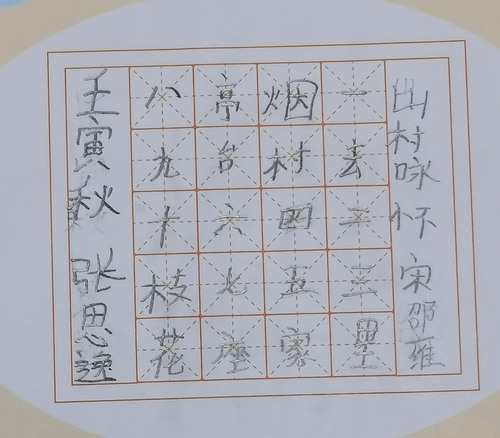 山村咏怀 宋 邵雍
一去二三里
烟村四五家
亭台六七座
八九十枝花
壬寅秋 张思逸